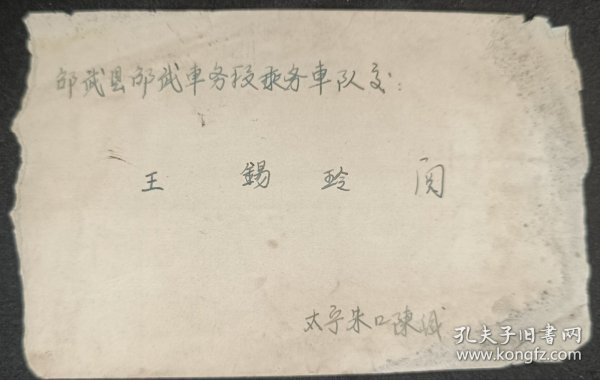 邵武县邵武車务段乘务車队交:
王 錫 玲 闵
太宁朱口陳缄
孔夫子旧书网
www.kongfz.com